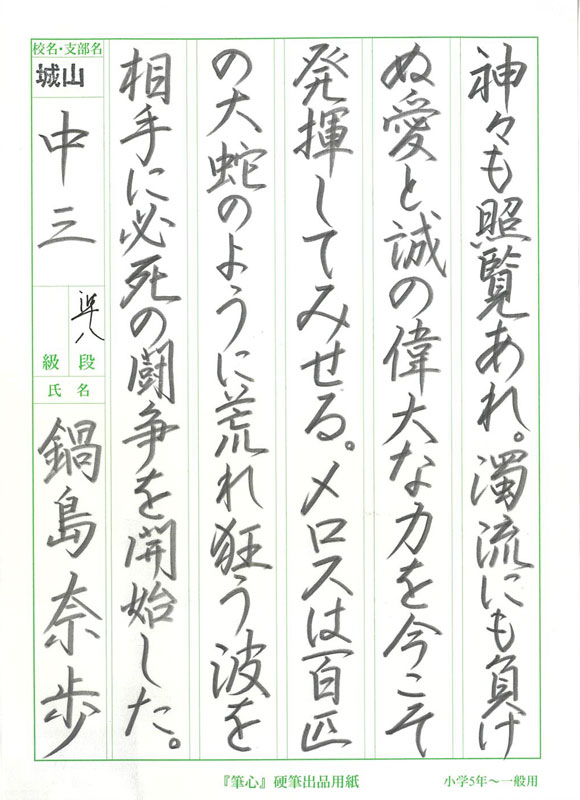 神々も照覧あれ。濁流にも負け
ぬ愛と誠の偉大な力を今こそ
発揮してみせる。メロスは百匹
の大蛇のように荒れ狂う波を
相手に必死の闘争を開始した。
校名・支部名
城山
中三
準八
段
級
氏名
鍋島奈歩
『筆心』硬筆出品用紙
小学5年〜一般用